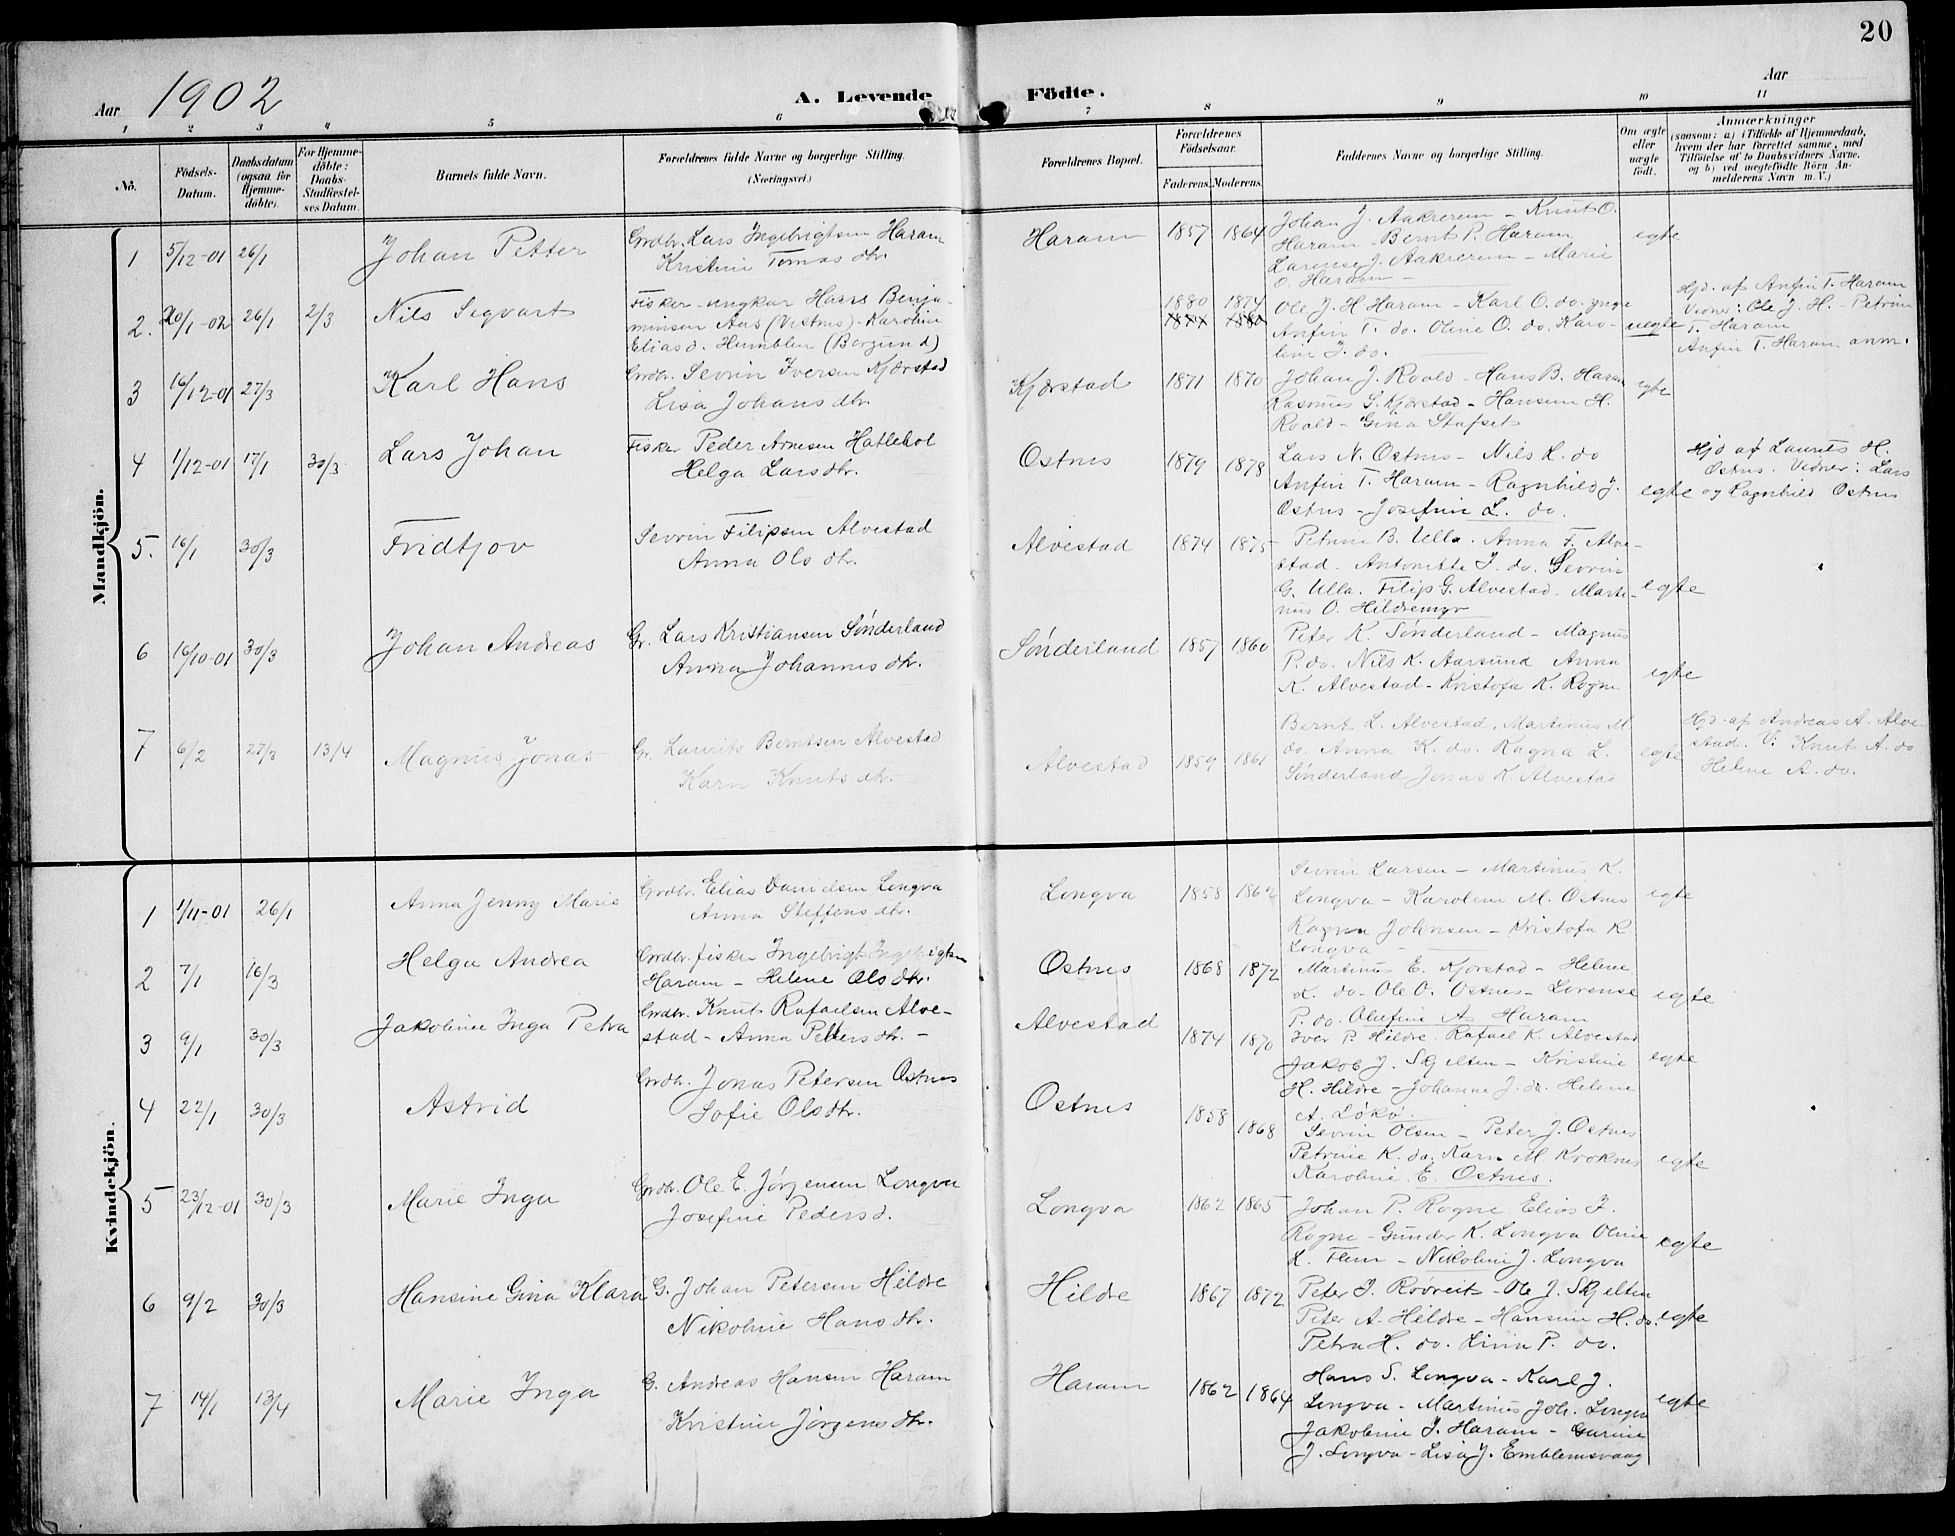 20
Aar 1902
A. Levende Födte.
Aar
1 2 3 4 5 6 7 8 9 10 11
No.
Födsels-Datum.
Daabsdatum (ogsaa for Hjemme-döbte).
For Hjemme-döbte: Daabs-Stadfæstel-ses Datum.
Barnets fulde Navn.
Forældrenes fulde Navne og borgerlige Stilling. (Næringsvei.)
Forældrenes Bopæl.
Forældrenes Födselsaar.
Faderens. Moderens.
Faddernes Navne og borgerlige Stilling.
Om ægte eller uægte födt.
Anmærkninger
(saasom: a) i Tilfælde af Hjemmedaab,
hvem der har forrettet samme, med
Tilföielse af to Daabsvidners Navne,
og b) ved uægtefödte Börn An-
melderens Navn m. V.)
Mandkjön.
1 5/12-01 26/1 Johan Petter
Grdbr. Lars Ingebrigtsen Haram
Kristine Tomasdtr.
Haram 1857 1864
Johan J. Aakrerem - Knut O.
Haram - Bernt P. Haram
Larense J. Aakrerem - Marie
O. Haram -
egte
2. 20/1-02 26/1 2/3 Nils Sigvart
Fisker - ungkar Hans Benja-
minsen Aas (Vestnes) - Karoline
Eliasd. Humblen (Borgund)
1880 1874
Ole J. H Haram - Karl O. do. yngre
Anfin T. do. Oline O. do. Karo-
line J. do.
uegte
Hjd. af Anfin T. Haram
Vidner: Ole J. H. - Petrine
T. Haram
Anfin T. Haram anm.
3 16/12-01 27/3 Karl Hans
Grdbr. Sevrin Iversen Kjærstad
Lisa Johansdtr.
Kjærstad 1871 1870
Johan J. Roald - Hans B. Haram
Rasmus S. Kjærstad - Hansine H.
Roald - Gina Stafset
egte
4 1/12-01 17/1 30/3 Lars Johan
Fisker Peder Arnesen Hatlehol
Helga Larsdtr.
Ostnes 1879 1878
Lars N. Ostnes - Nils L. do
Anfin T. Haram - Ragnhild J.
Ostnes - Josefine L. do.
egte
Hjd af Laurits H.
Ostnes. Vidner: Lars
og Ragnhild Ostnes
5. 16/1 30/3 Fridtjov
Sevrin Filipsen Alvestad
Anna Olsdtr.
Alvestad 1874 1875
Petrine B. Ulla. Anna F. Alve-
stad. Antonette J. do. Sevrin
G. Ulla. Filip G. Alvestad. Marti-
nus O. Hildremyr
egte
6 16/10-01 30/3 Johan Andreas
Gr. Lars Kristiansen Sönderland
Anna Johannesdtr.
Sönderland 1857 1860
Peter K. Sønderland - Magnus
P. do. Nils K. Aarsund Anna
K. Alvestad - Kristofa K. Rogne
egte
7 6/2 27/3 13/4 Magnus Jonas
Gr. Laurits Berntsen Alvestad
Karn Knutsdtr.
Alvestad 1859 1861
Bernt L. Alvestad. Martinus M
do. Anna K. do. Ragna L.
Sønderland Jonas K. Alvestad
egte
Hjd. af Andreas A. Alve
stad. V: Knut A. do
Helene A. do.
Kvindekjön.
1 1/11-01 26/1 Anna Jenny Marie
Grdbr. Elias Danielsen Longva
Anna Steffensdtr.
Longva 1858 1862
Sevrin Larsen - Martinus K.
Longva - Karoline M. Ostnes
Ragna Johnsen - Kristofa R
Longva -
egte
2 7/1 16/3 Helga Andrea
Grdbr. fisker Ingebrigt Ingebrigtsen
Haram - Helene Olsdtr.
Ostnes 1868 1872
Martinus E. Kjærstad - Helene
L. do. Ole O. Ostnes - Lorense
P. do. Olufine A. Haram
egte
3 9/1 30/3 Jakobine Inga Petra
Grdbr. Knut Rafaelsen Alve-
stad - Anna Pettersdtr. -
Alvestad 1874 1870
Iver P. Hildre. Rafael K. Alvestad
Jakob J. Skjelten - Kristine
H. Hildre - Johanne J. do. Helene
A. Løkø.
egte
4 22/1 30/3 Astrid
Grdbr. Jonas Petersen Ostnes
Sofie Olsdtr.
Ostnes 1858 1868
Sevrin Olsen - Peter J. Ostnes
Petrine K. do. Karn M. Kroknes
Karoline E. Ostnes.
egte
5 23/12-01 30/3 Marie Inga
Grdbr. Ole E. Jörgensen Longva
Josefine Pedersd.
Longva 1862 1865
Johan P. Rogne Elias J.
Rogne - Gunder K. Longva Oline
L. Flem - Nikoline J. Longva
egte
6 9/2 30/3 Hansine Gina Klara
G. Johan Petersen Hildre
Nikoline Hansdtr.
Hildre 1867 1872
Peter J. Røvreit - Ole J. Skjelten
Peter A. Hildre - Hansine H. do.
Petra H. do. Lina P. do.
egte
7 14/1 13/4 Marie Inga
G. Andreas Hansen Haram
Kristine Jörgensdtr.
Haram 1862 1864
Hans S. Longva - Karl J.
Longva - Martinus Joh. Longva
Jakobine J. Haram - Gurine
J. Longva - Lisa J. Emblemsvaag
egte